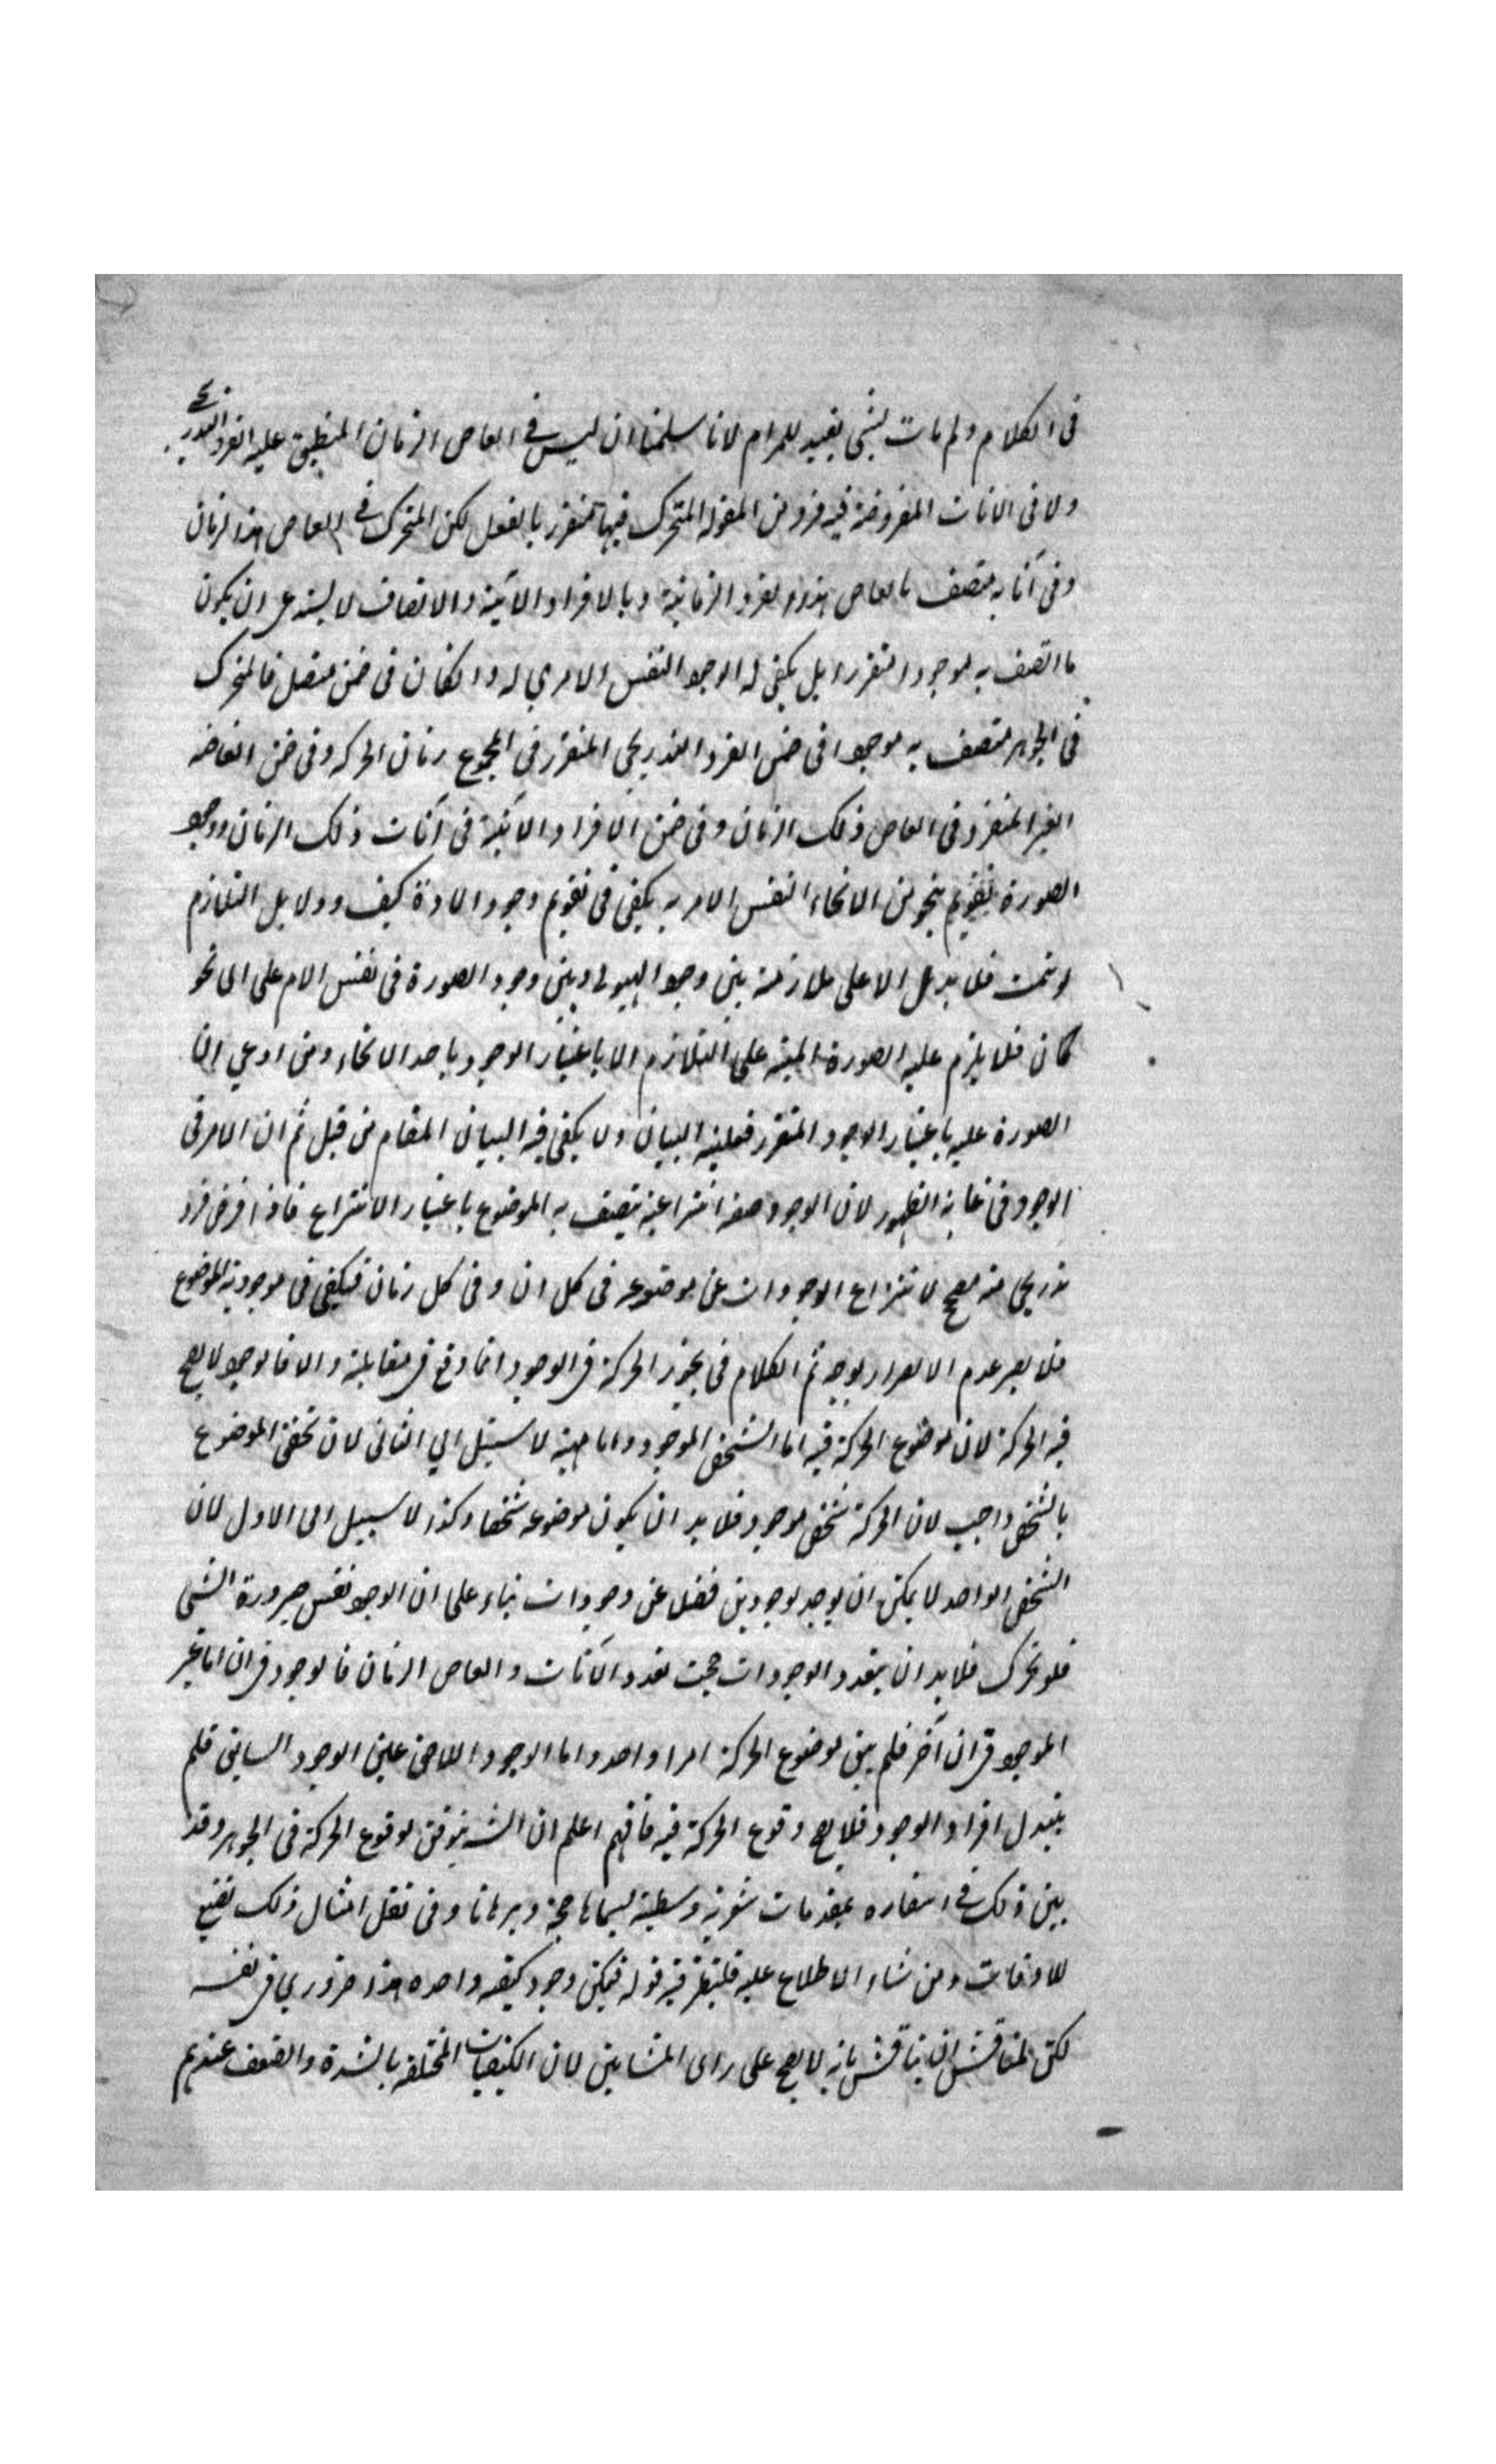 فى الكلام ولم يات بشئ يفيد للمرام لانا سلمنا ان ليس فى ابعاض الزمان المنطبق عليه الفرد التدريجى
ولا فى الانات المفروضة فيه فرد من المقولة المتحرك فيها متقرر بالفعل لكن المتحرك فى ابعاض هذا الزمان
وفى آناته متصف بابعاض هذه الفرد الزمانية وبالافراد الآنية والاتصاف لا يستدعى ان يكون
ما اتصف به موجودا متقررا بل يكفى له الوجود النفس الامرى له وان كان فى ضمن متصل فالمتحرك
فى الجوهر متصف به موجودا فى ضمن الفرد التدريجى المتقرر فى المجموع زمان الحركة وفى ضمن ابعاضه
الغير المتقررة فى ابعاض ذلك الزمان وفى ضمن الافراد الآنية فى آنات ذلك الزمان ووجود
الصورة بنحو من الانحاء النفس الامرية يكفى فى تقويم وجود المادة كيف ودلايل التلازم
لو تمت فلا يدل الا على ملازمة بين وجود الهيولى وبين وجود الصورة فى نفس الامر على اى نحو
كان فلا يلزم علية الصورة المبنية على التلازم الا باعتبار الوجود باحد الانحاء ومن ادعى ان
الصورة علية باعتبار الوجود المتقرر فعليه البيان ولا يكفى فيه البيان المقام من قبل ثم ان الامر فى
الوجود فى غاية الظهور لان الوجود صفة انتزاعية يتصف به الموضوع باعتبار الانتزاع فاذا فرض فرد
تدريجى منه مصحح لانتزاع الوجودات عن موضوعه فى كل ان وفى كل زمان فيكفى فى موجودية الموضوع
فلا يضر عدم الابعاض الموجودة ثم الكلام فى تجويز الحركة فى الوجود انما وقع فى مقابلة والا فالوجود لا يصح
فيه الحركة لان موضوع الحركة فيه اما الشخص الموجود واما ماهية لا سبيل الى الثانى لان تحقق الموضوع
بالشخص واجب لان الحركة شخص موجود فلا بد ان يكون موضوعه شخصا وكذا لا سبيل الى الاول لان
الشخص الواحد لا يمكن ان يوجد بوجودين فضلا عن وجودات بناء على ان الوجود نفس صيرورة الشئ
فلو تحرك فلا بد ان يتعدد الوجودات حيث تعدد الآنات وابعاض الزمان فالوجود فى ان اما غير
الموجود فى ان آخر فلم يبق موضوع الحركة امرا واحدا واما الوجود اللاحق عين الوجود السابق فلم
يتبدل افراد الوجود فلا يصح وقوع الحركة فيه فافهم اعلم ان الش يتوقن بوقوع الحركة فى الجوهر وقد
بين ذلك فى اسفاره بمقدمات شعرية وسطية يسميها حجة وبرهانا وفى نقل امثال ذلك تضييع
للاوقات ومن شاء الاطلاع عليه فلينظر فيه قوله فيكون وجود كيفية واحدة هذا ضرورى فى نفسه
لكن لمناقش ان يناقش بانه لا يصح على راى المشائين لان الكيفيات المختلفة بالشدة والضعف عندهم